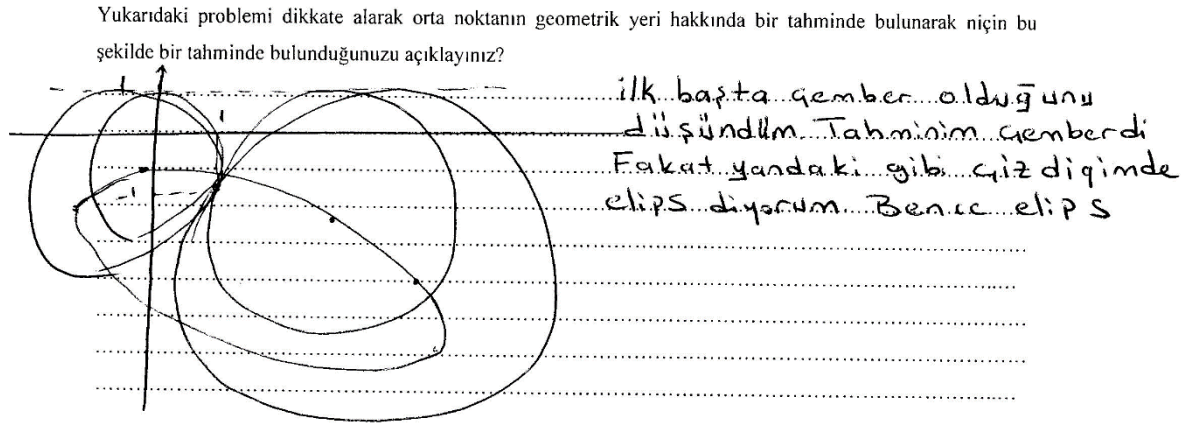 Yukarıdaki problemi dikkate alarak orta noktanın geometrik yeri hakkında bir tahminde bulunarak niçin bu
şekilde bir tahminde bulunduğunuzu açıklayınız?
ilk başta çember olduğunu
düşündüm. Tahminim çemberdi
Fakat yandaki gibi çizdiğimde
elips diyorum. Bence elips